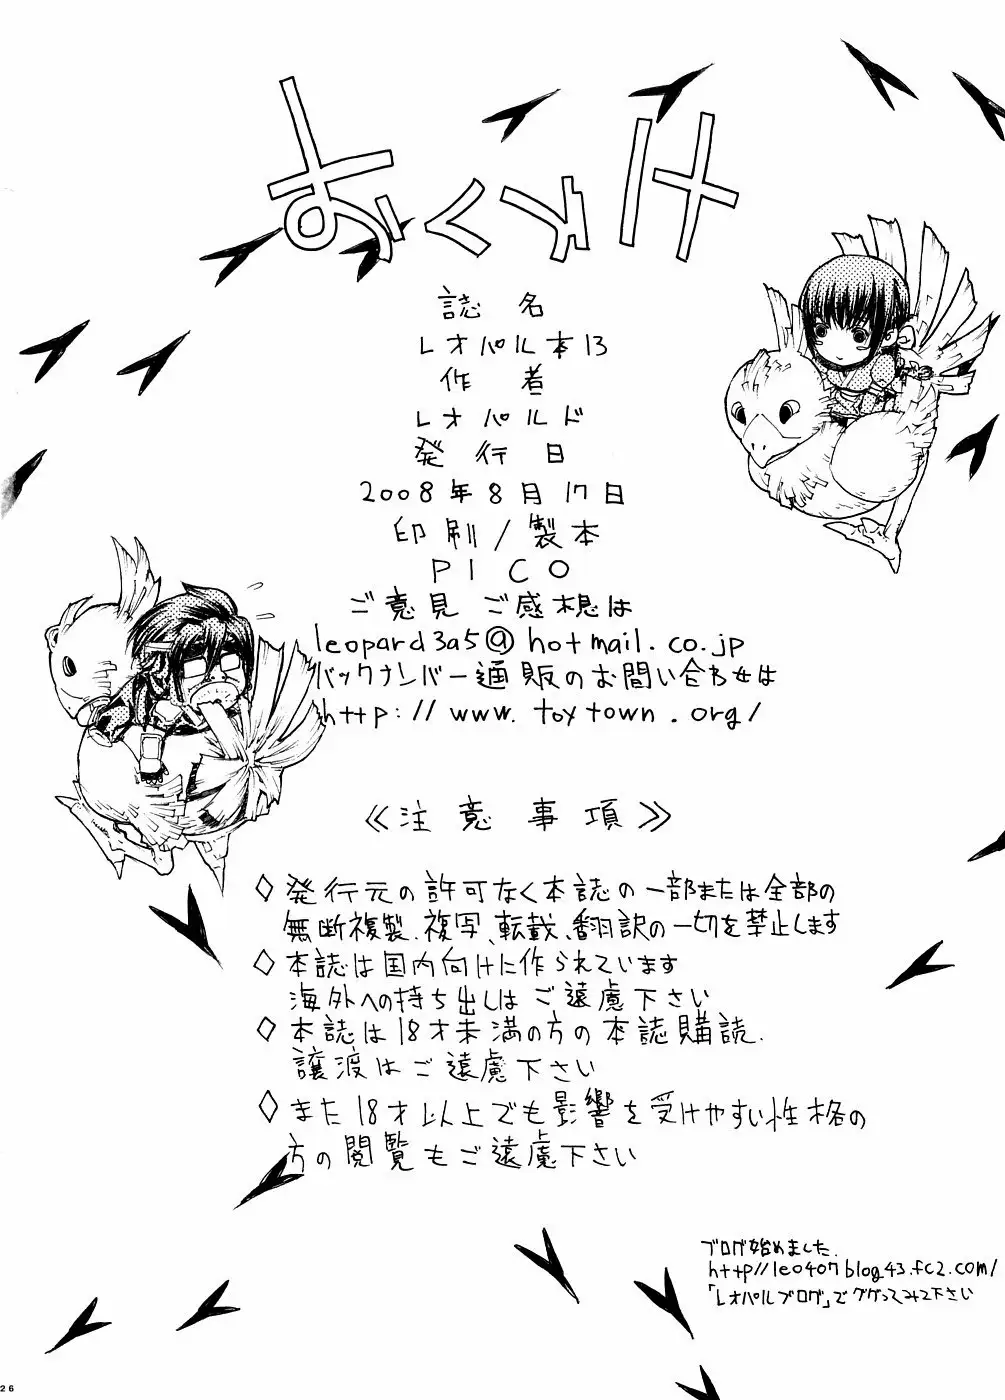 おくづけ
誌名
レオパル本13
作者
レオパルド
発行日
2008年8月17日
印刷/製本
PICO
ご意見ご感想は
leopard3a5@hotmail.co.jp
バックナンバー通販のお問い合わせは
http://www.toytown.org/
≪注意事項≫
◇発行元の許可なく本誌の一部または全部の
無断複製、複写、転載、翻訳の一切を禁止します
◇本誌は国内向けに作られています
海外への持ち出しはご遠慮下さい
◇本誌は18才未満の方の本誌購読、
譲渡はご遠慮下さい
◇また18才以上でも影響を受けやすい性格の
方の閲覧もご遠慮下さい
ブログ始めました。
http//leo407blog43.fc2.com/
「レオパルブログ」でググってみて下さい
26